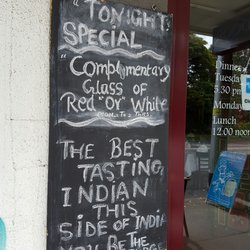 "TONIGHT'S
SPECIAL
"Complimentary
Glass of
Red "Or" White
THE BEST
TASTING
INDIAN
THIS
SIDE OF INDIA
YOU BE THE
Dinner
Tuesda
5.30 pm
Monday
Lunch
12.00 noon